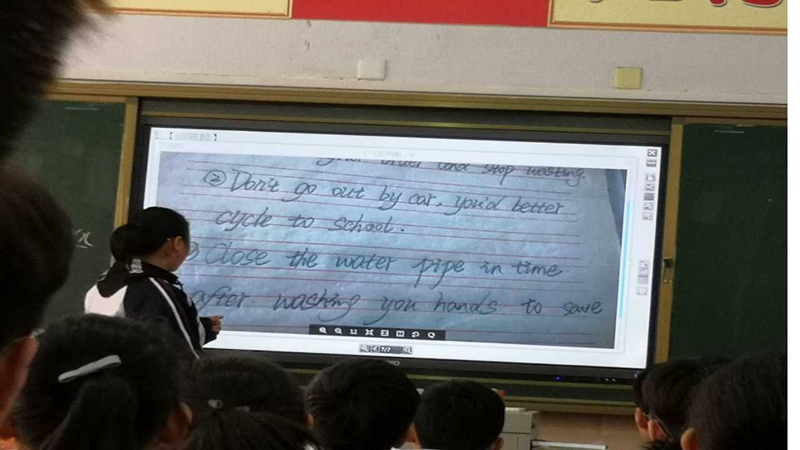 your order and stop wasting.
② Don't go out by car. you'd better
cycle to school.
Close the water pipe in time
after washing you hands to save
7/7